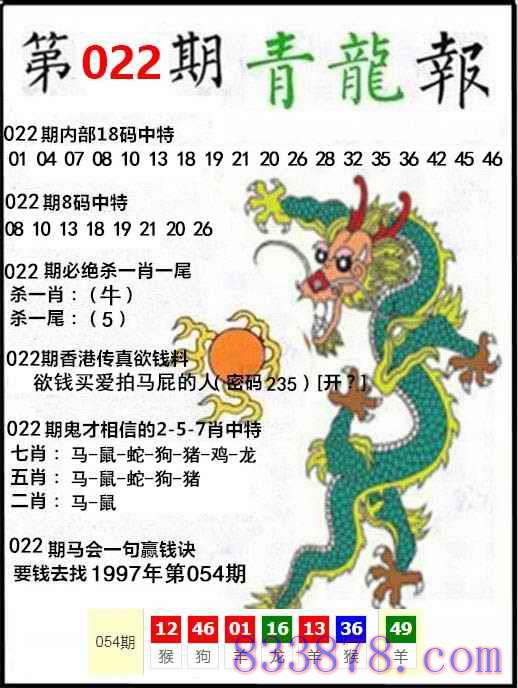 第022期 青龍報
022期内部18码中特
01 04 07 08 10 13 18 19 21 20 26 28 32 35 36 42 45 46
022期8码中特
08 10 13 18 19 21 20 26
022期必绝杀一肖一尾
杀一肖：(牛)
杀一尾：(5)
022期香港传真欲钱料
欲钱买爱拍马屁的人(密码235)[开?]
022期鬼才相信的2-5-7肖中特
七肖：马-鼠-蛇-狗-猪-鸡-龙
五肖：马-鼠-蛇-狗-猪
二肖：马-鼠
022期马会一句赢钱诀
要钱去找1997年第054期
054期 12 46 01 16 13 36 49
猴 狗 羊 龙 羊 猴 羊
833878.com